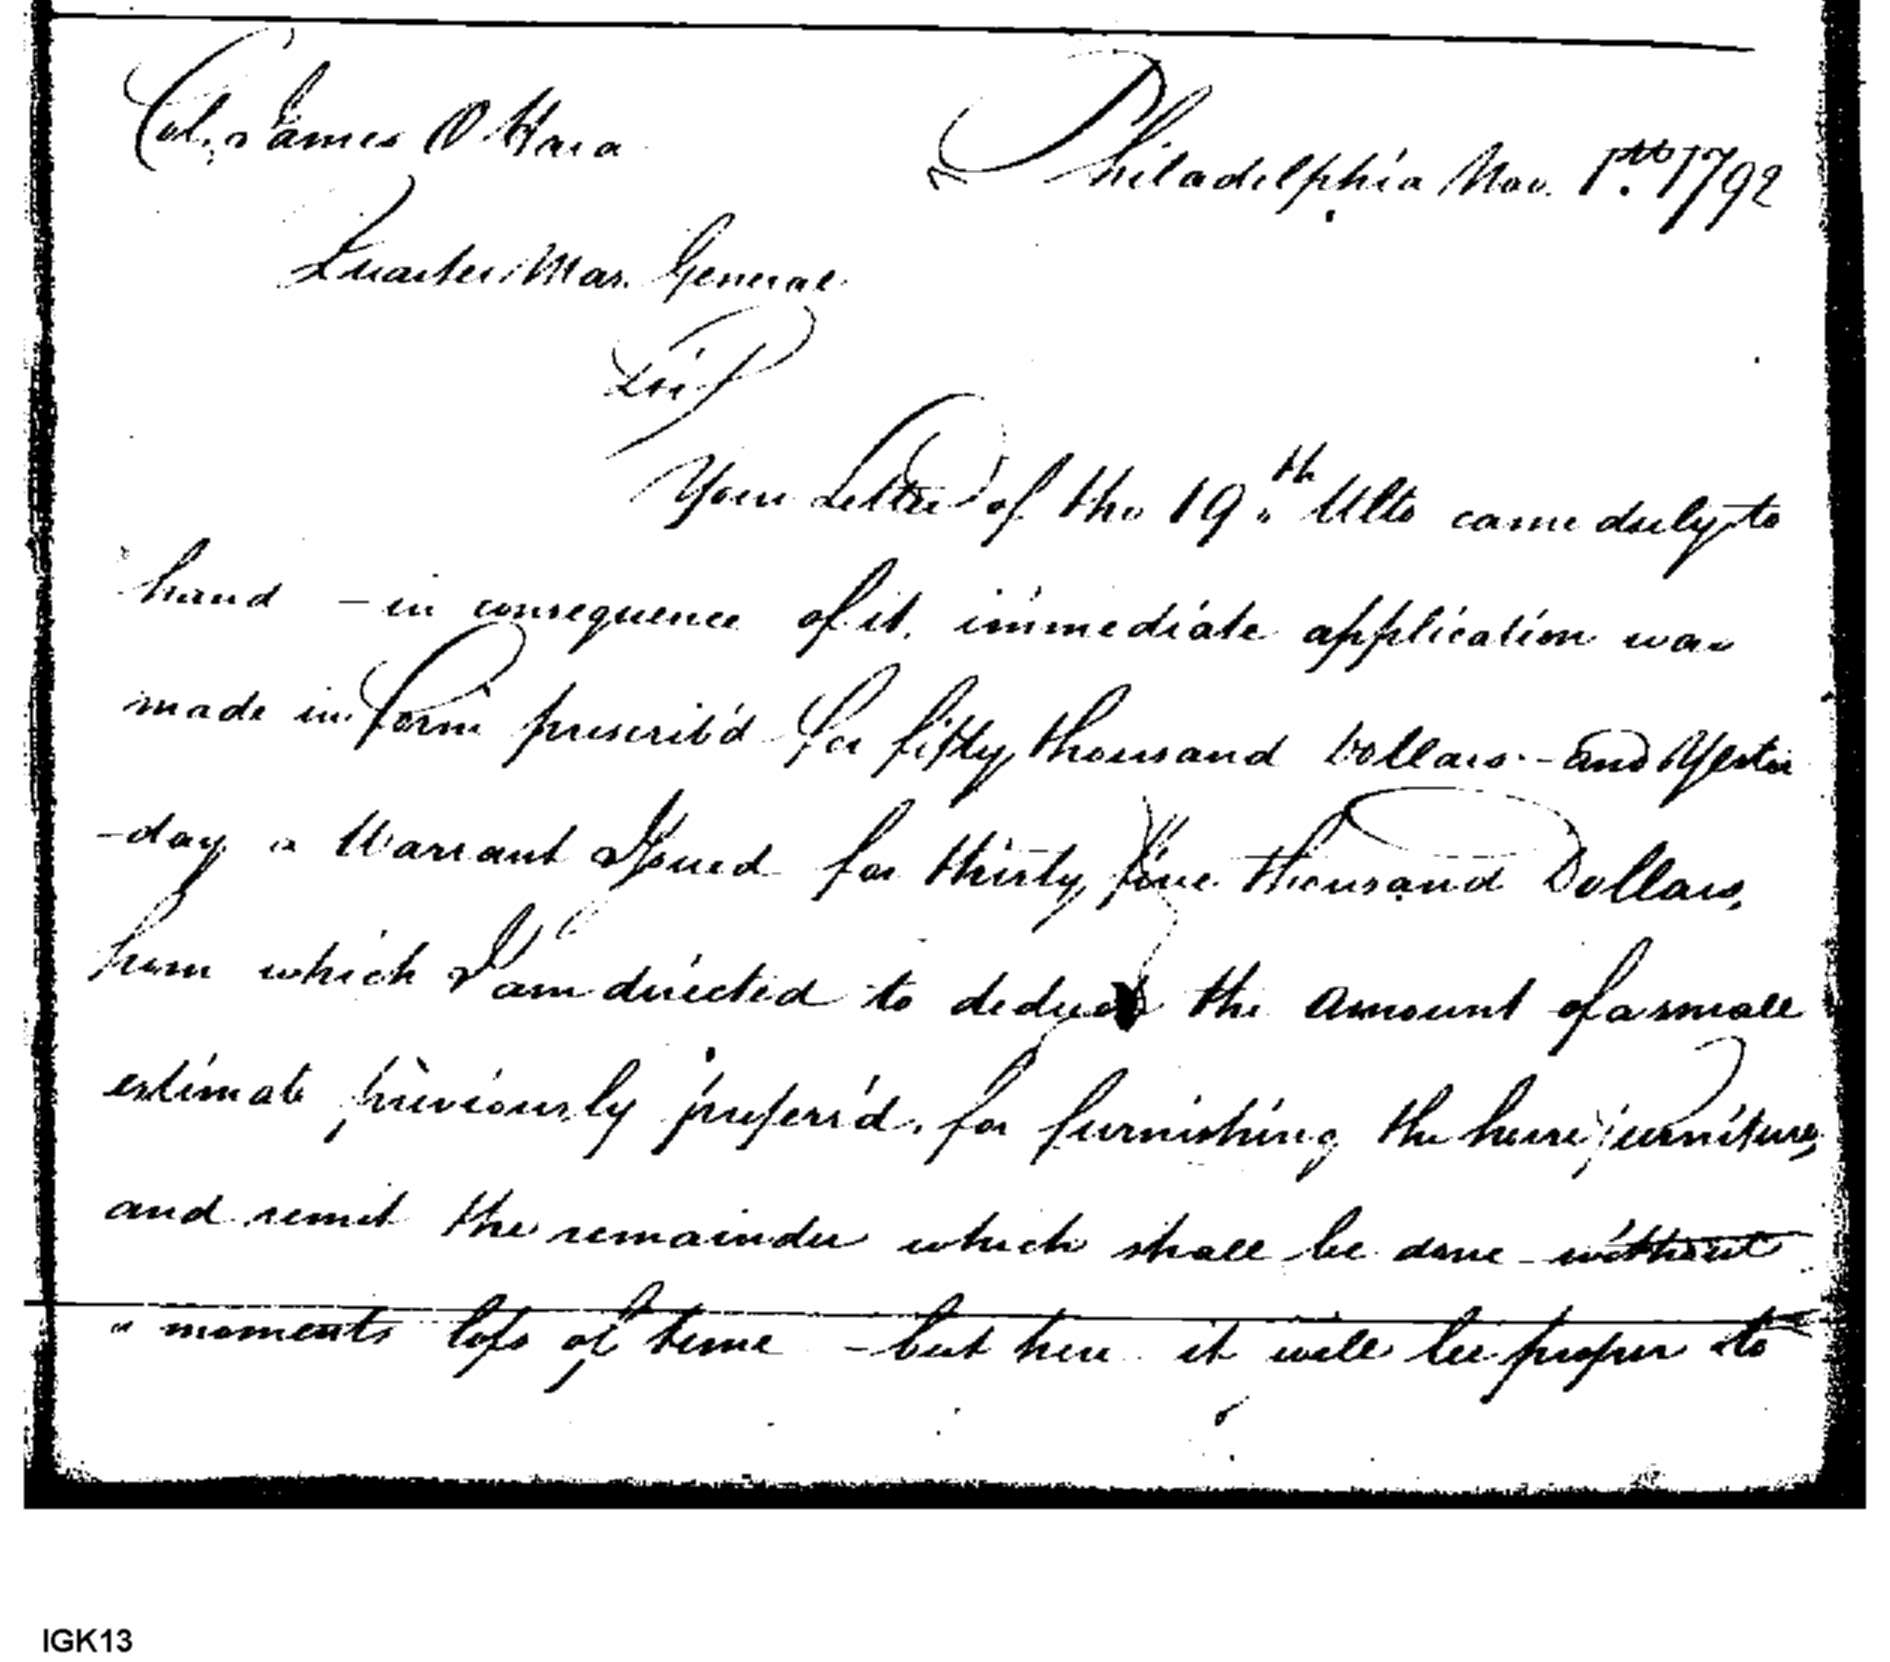 Col. James O Hara
Philadelphia Nov. 1st. 1792
Quarter Mas. General
Sir
Your Letter of the 19th. Ulto came duly to
hand – in consequence of it, immediate application was
made in form prescrib'd for fifty thousand Dollars – and Yester
-day a Warrant Issued for thirty five thousand Dollars,
from which I am directed to deduct the amount of a small
estimate previously preferr'd, for furnishing the furniture,
and remit the remainder which shall be done – without
a moments loss of time – but here it will be proper to
IGK13